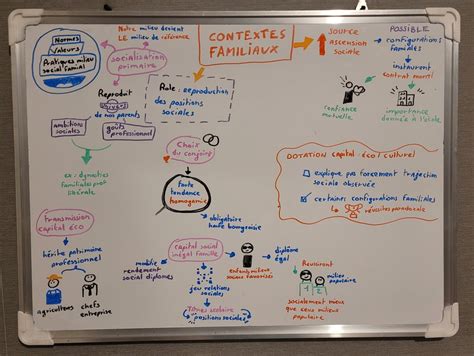 Notre milieu devient
LE milieu de référence
CONTEXTES
FAMILIAUX
SOURCE
ASCENSION
Sociale
POSSIBLE
configurations
familiales
instaurent
contrat moral
confiance
mutuelle
importance
donnée à l'école
Normes
Valeurs
Pratiques milieu
social familial
socialisation
primaire
Reproduit
univers
de nos parents
ambitions
sociales
goûts professionnel
Role : reproduction
des positions
sociales
Choix
du conjoint
forte
tendance
homogamie
obligatoire
ex : dynasties
familiales
DOTATION capital éco / culturel
explique pas forcement trajectoire
sociale observée
certaines configurations familiales
réussites paradoxale
transmission
capital éco
hérite patrimoine
professionnel
agriculteurs
chefs
entreprise
capital social
inégal famille
mobilise
rendement
social diplomes
jeu relations
sociales
Titres scolaire
positions sociales
enfants milieux
sociaux favorisés
diplôme
égal
Reussiront
milieu
populaire
1
2
socialement mieux
que ceux milieux
populaire